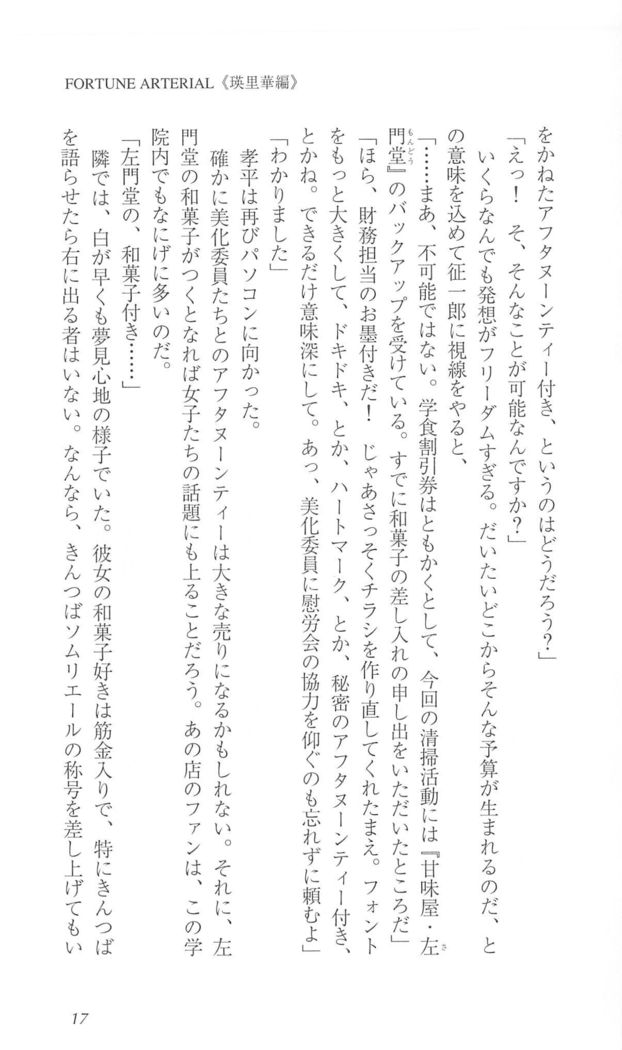 FORTUNE ARTERIAL《瑛里華編》
をかねたアフタヌーンティー付き、というのはどうだろう?」
「えっ! そ、そんなことが可能なんですか?」
いくらなんでも発想がフリーダムすぎる。だいたいどこからそんな予算が生まれるのだ、と
の意味を込めて征一郎に視線をやると、
「……まあ、不可能ではない。学食割引券はともかくとして、今回の清掃活動には『甘味屋・左
門堂』のバックアップを受けている。すでに和菓子の差し入れの申し出をいただいたところだ」
「ほら、財務担当のお墨付きだ! じゃあさっそくチラシを作り直してくれたまえ。フォント
をもっと大きくして、ドキドキ、とか、ハートマーク、とか、秘密のアフタヌーンティー付き、
とかね。できるだけ意味深にして。あっ、美化委員に慰労会の協力を仰ぐのも忘れずに頼むよ」
「わかりました」
孝平は再びパソコンに向かった。
確かに美化委員たちとのアフタヌーンティーは大きな売りになるかもしれない。それに、左
門堂の和菓子がつくとなれば女子たちの話題にも上ることだろう。あの店のファンは、この学
院内でもなにげに多いのだ。
「左門堂の、和菓子付き……」
隣では、白が早くも夢見心地の様子でいた。彼女の和菓子好きは筋金入りで、特にきんつば
を語らせたら右に出る者はいない。なんなら、きんつばソムリエールの称号を差し上げてもい
17